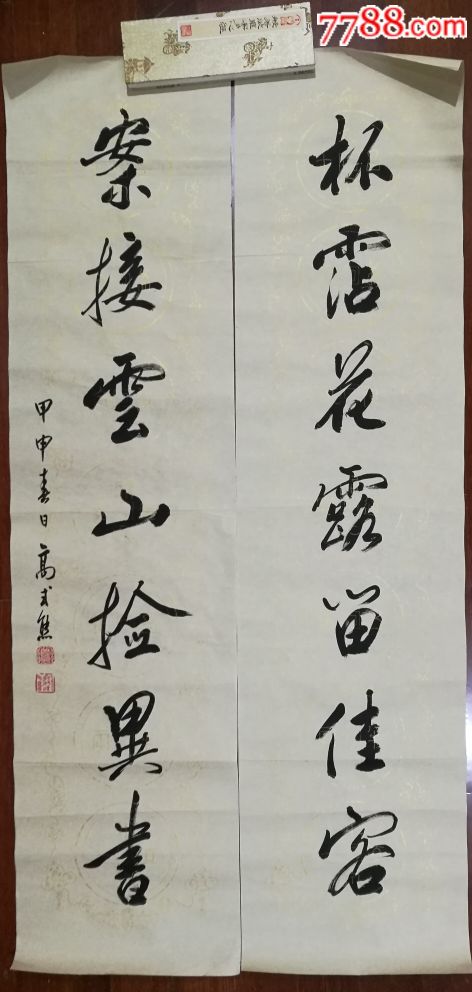 杯霑花露留佳客
案接雲山捡異書
甲申春日高式熊
7788.com